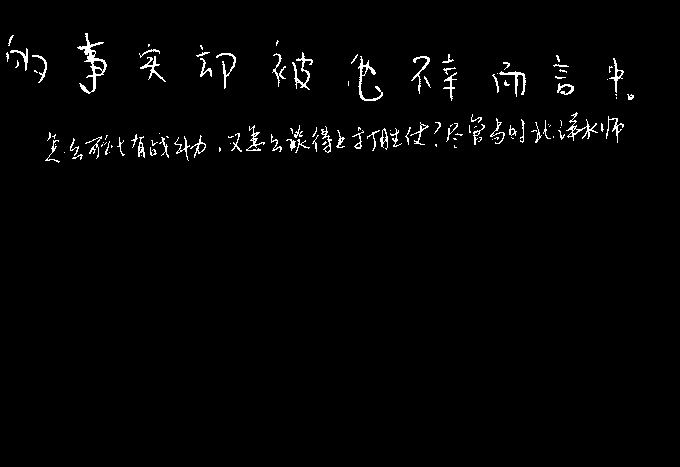 的事实却被他不幸而言中。
怎么能有战斗力,又怎么谈得上打胜仗?尽管当时北洋水师